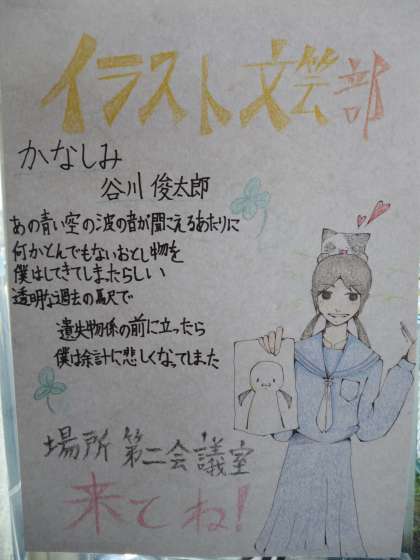 イラスト文芸部
かなしみ
谷川 俊太郎
あの青い空の波の音が聞こえるあたりに
何かとんでもないおとし物を
僕はしてきてしまったらしい
透明な過去の駅で
遺失物係の前に立ったら
僕は余計に悲しくなってしまった
場所 第二会議室
来てね!